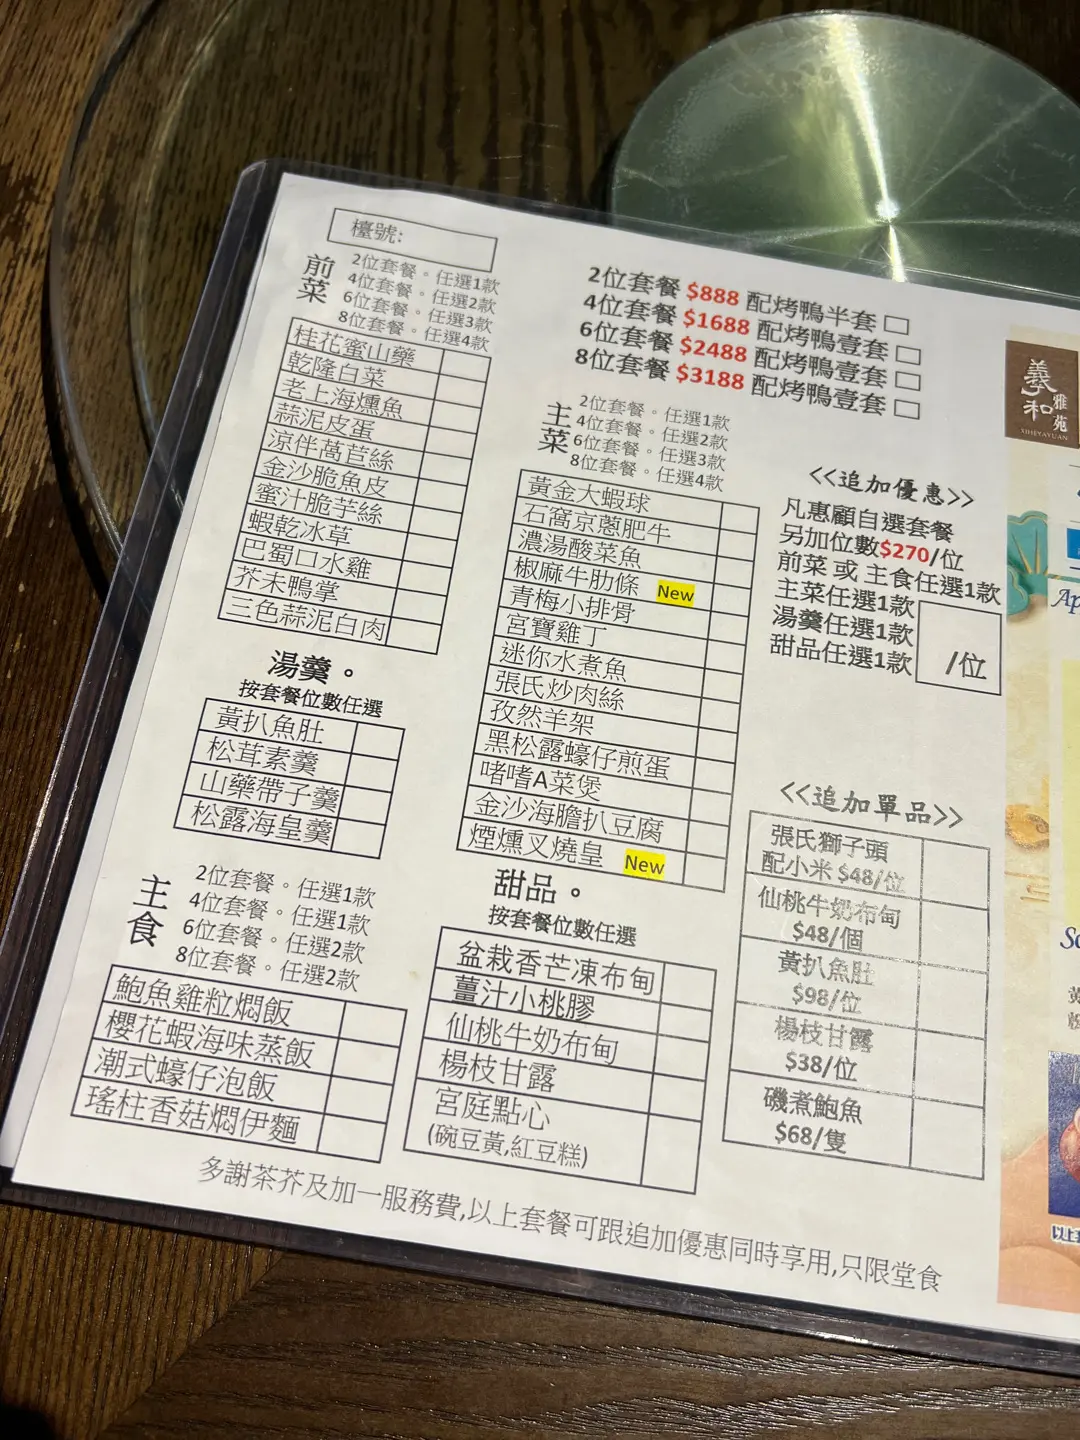 檯號:
前菜
2位套餐。任選1款
4位套餐。任選2款
6位套餐。任選3款
8位套餐。任選4款
桂花蜜山藥
乾隆白菜
老上海燻魚
蒜泥皮蛋
涼伴萵苣絲
金沙脆魚皮
蜜汁脆芋絲
蝦乾冰草
巴蜀口水雞
芥末鴨掌
三色蒜泥白肉
湯羹。
按套餐位數任選
黃扒魚肚
松茸素羹
山藥帶子羹
松露海皇羹
主食
2位套餐。任選1款
4位套餐。任選1款
6位套餐。任選2款
8位套餐。任選2款
鮑魚雞粒燜飯
櫻花蝦海味蒸飯
潮式蠔仔泡飯
瑤柱香菇燜伊麵
2位套餐 $888 配烤鴨半套
4位套餐 $1688 配烤鴨壹套
6位套餐 $2488 配烤鴨壹套
8位套餐 $3188 配烤鴨壹套
主菜
2位套餐。任選1款
4位套餐。任選2款
6位套餐。任選3款
8位套餐。任選4款
黃金大蝦球
石窩京蔥肥牛
濃湯酸菜魚
椒麻牛肋條 New
青梅小排骨
宮寶雞丁
迷你水煮魚
張氏炒肉絲
孜然羊架
黑松露蠔仔煎蛋
啫嗜A菜煲
金沙海膽扒豆腐
煙燻叉燒皇 New
甜品。
按套餐位數任選
盆栽香芒凍布甸
薑汁小桃膠
仙桃牛奶布甸
楊枝甘露
宮庭點心
(碗豆黃,紅豆糕)
<<追加優惠>>
凡惠顧自選套餐
另加位數$270/位
前菜 或 主食任選1款
主菜任選1款
湯羹任選1款
甜品任選1款
/位
<<追加單品>>
張氏獅子頭
配小米 $48/位
仙桃牛奶布甸
$48/個
黃扒魚肚
$98/位
楊枝甘露
$38/位
磯煮鮑魚
$68/隻
多謝茶芥及加一服務費,以上套餐可跟追加優惠同時享用,只限堂食
羲和雅苑
XIHEYAYUAN
Ap
以上